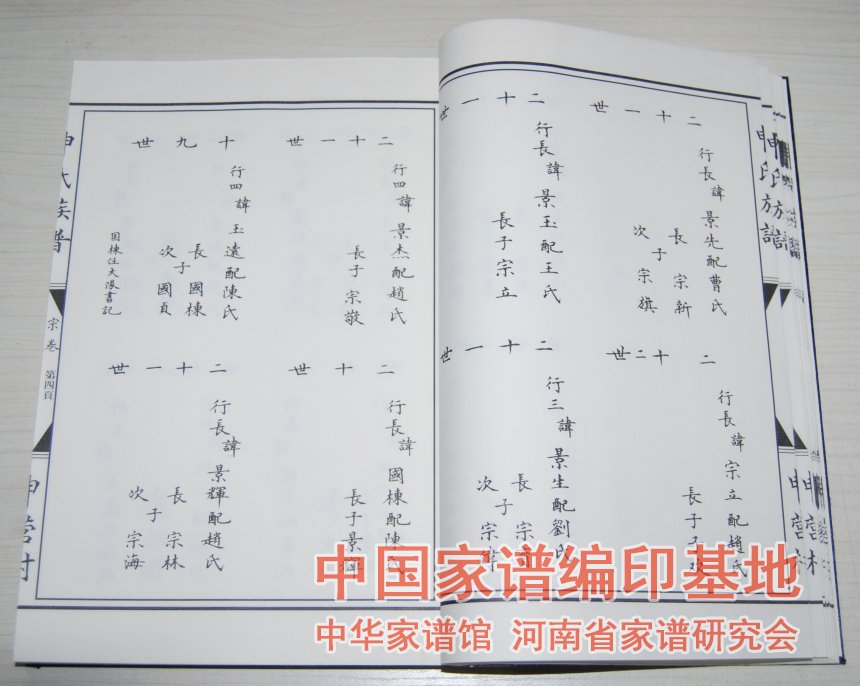 申氏族譜
申營村
二十一世
行長諱景先配曹氏
長宗新
子
次宗旗
二十一世
行長諱景玉配王氏
長子宗立
二十二世
行長諱宗立配趙氏
長子子
二十一世
行三諱景生配劉氏
長宗
子
次宗偉
二十一世
行四諱景杰配趙氏
長子宗敬
十九世
行四諱玉遠配陳氏
長國棟
子
次國貞
國棟任大隊書記
二十世
行長諱國棟配陳氏
長子景輝
二十一世
行長諱景輝配趙氏
長宗林
子
次宗海
申氏族譜
宗卷
第四頁
申營村
中国家谱编印基地
中华家谱馆 河南省家谱研究会